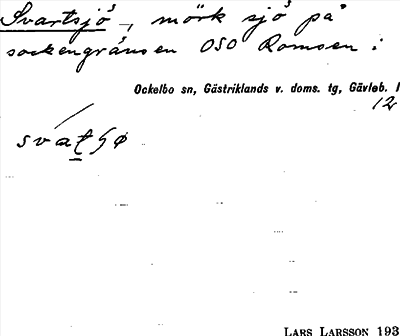 Svartsjö –, mörk sjö på
sockengränsen OSO Romsen :
Ockelbo sn, Gästriklands v. doms. tg, Gävleb. l
12
LARS LARSSON 193